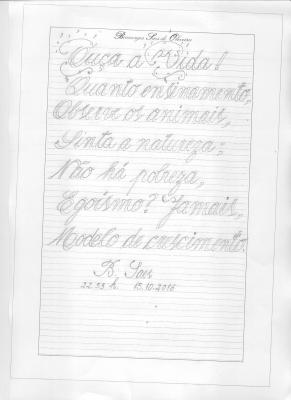 Berenngue Sáes de Oliveira
Ouça a Vida!
Quanto ensinamento,
Observe os animais,
Sinta a natureza;
Não há pobreza,
Egoísmo? Jamais,
Modelo de crescimento.
B. Saes
22.53 h. 15.10.2016